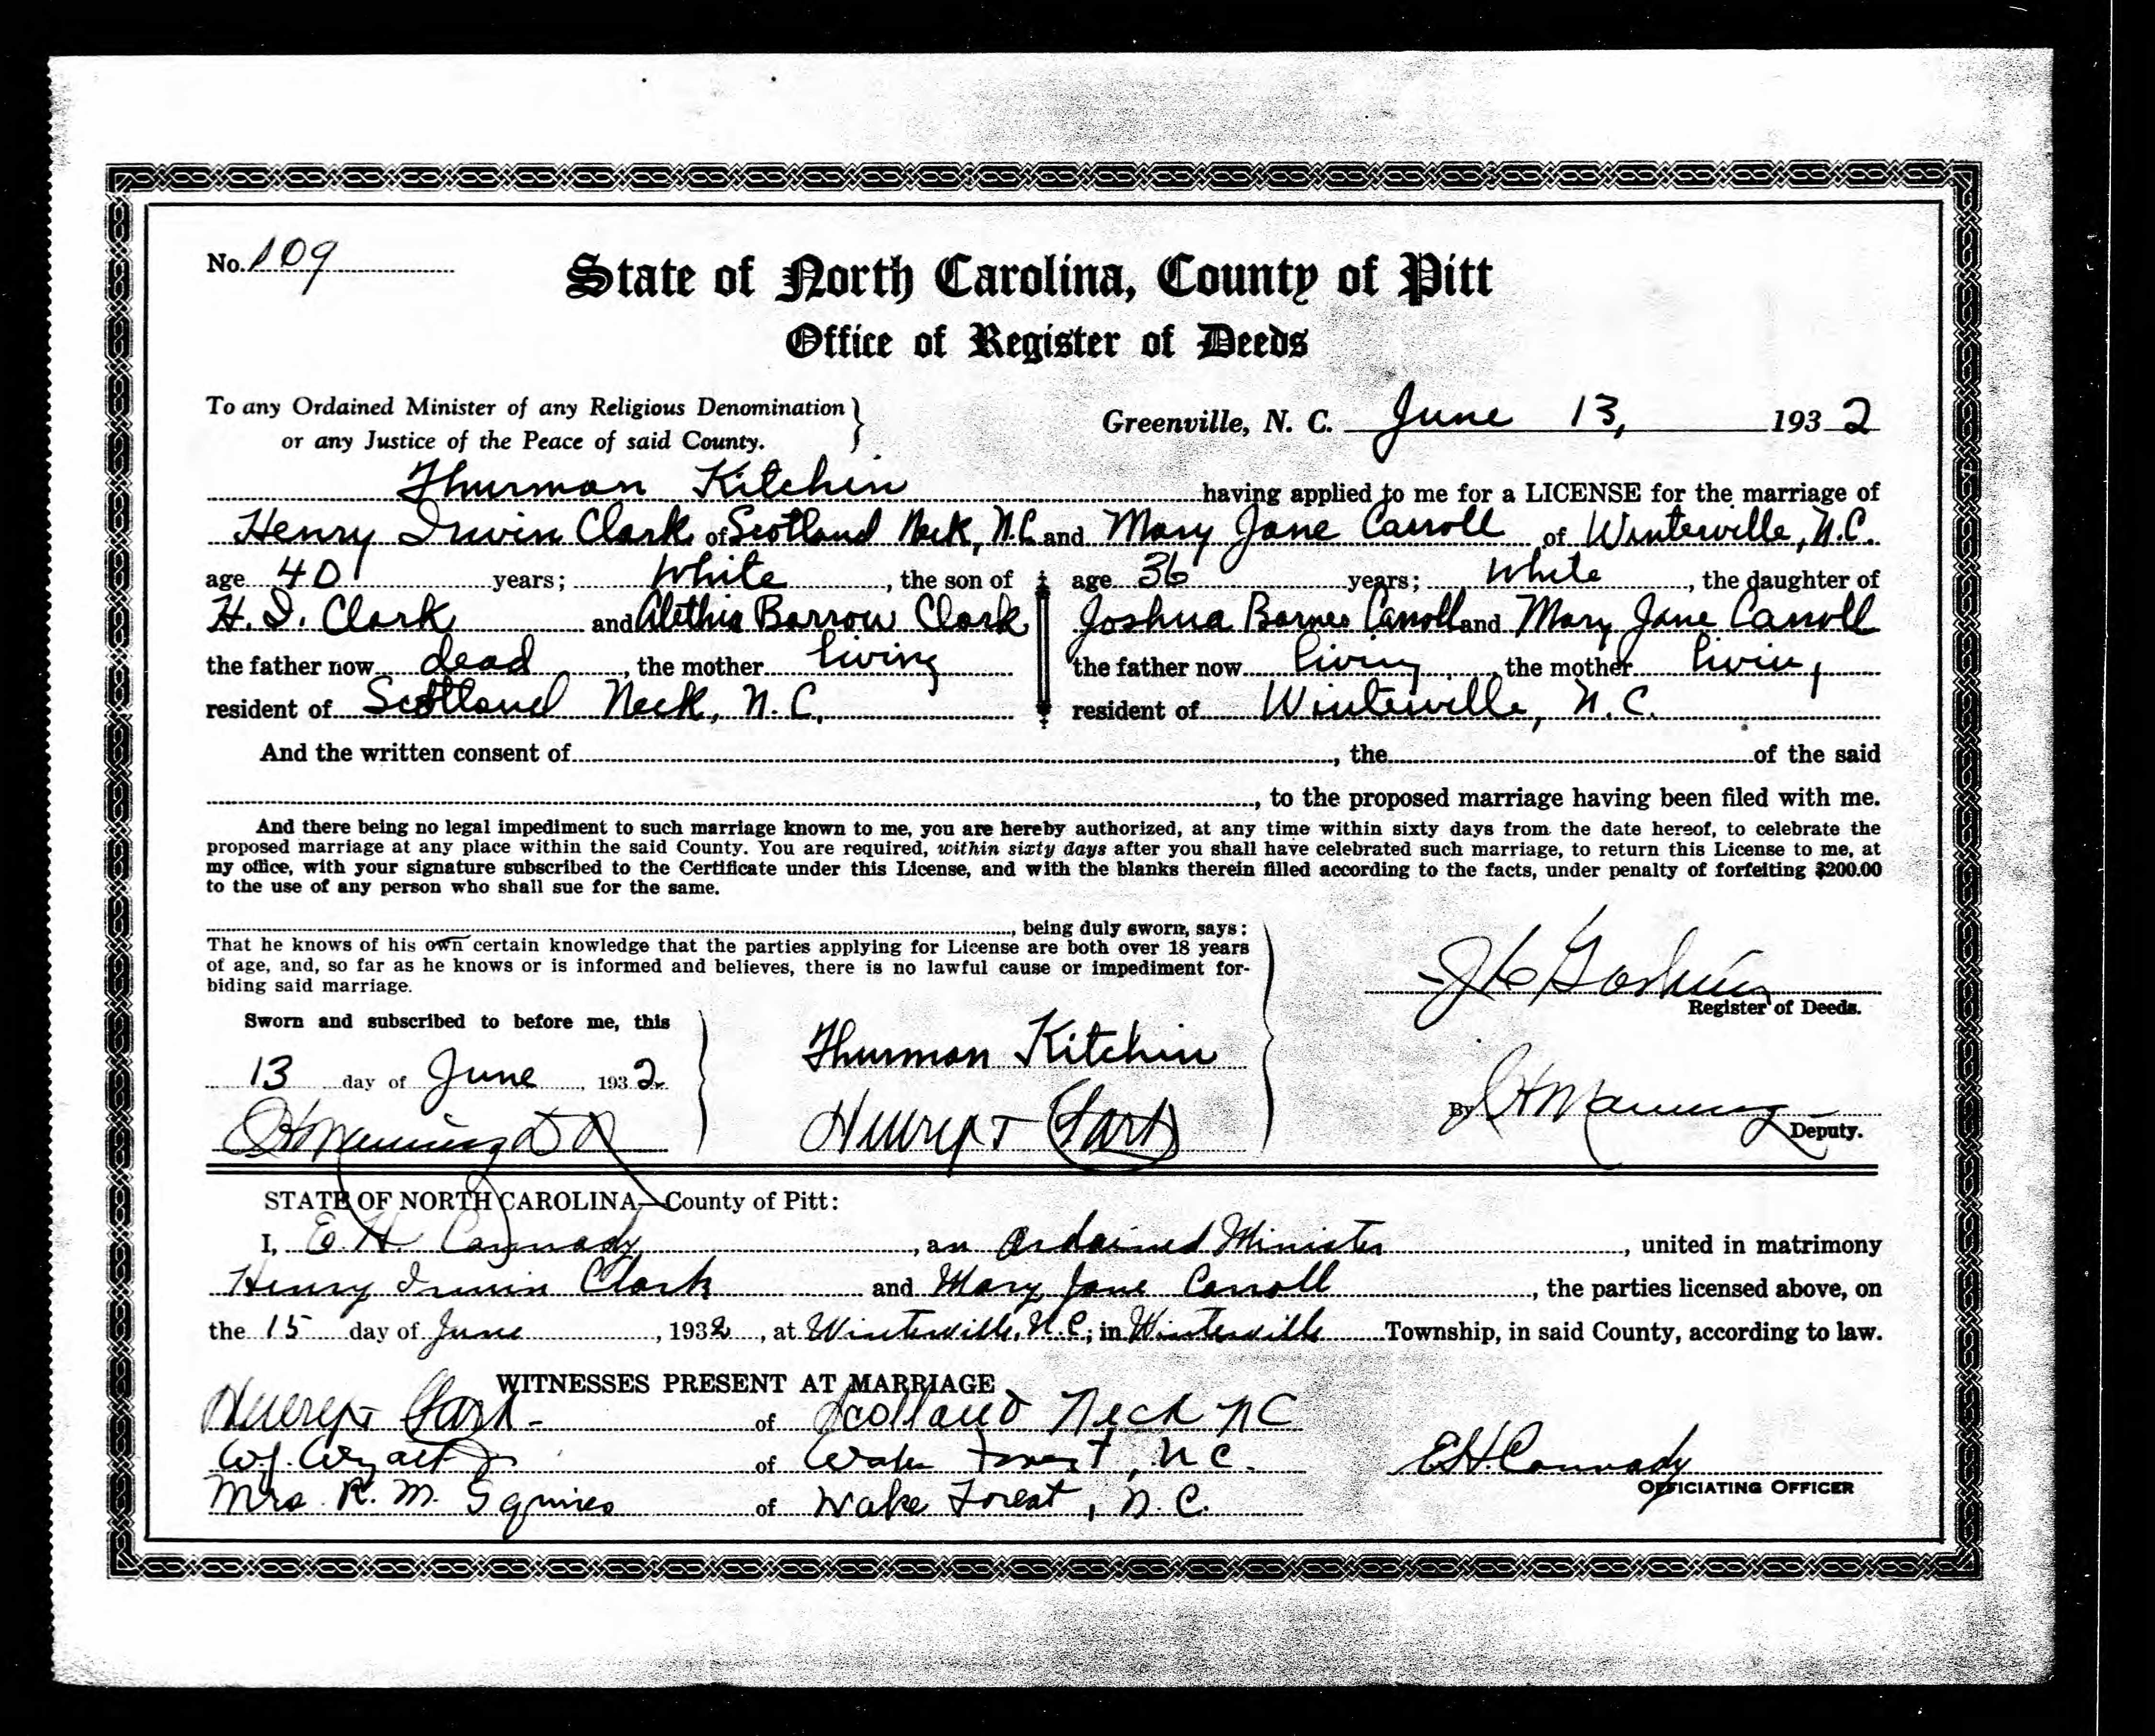 No. 109
State of North Carolina, County of Pitt
Office of Register of Deeds
To any Ordained Minister of any Religious Denomination
or any Justice of the Peace of said County.
Greenville, N. C. June 13, 1932
Thurman Kitchin having applied to me for a LICENSE for the marriage of
Henry Irwin Clark of Scotland Neck, N.C. and Mary Jane Carroll of Winterville, N.C.
age 40 years; White, the son of age 36 years; White, the daughter of
H. I. Clark and Alethia Barrow Clark Joshua Barnes Carroll and Mary Jane Carroll
the father now dead, the mother living the father now living, the mother living
resident of Scotland Neck, N.C. resident of Winterville, N.C.
And the written consent of, the of the said
, to the proposed marriage having been filed with me.
And there being no legal impediment to such marriage known to me, you are hereby authorized, at any time within sixty days from the date hereof, to celebrate the
proposed marriage at any place within the said County. You are required, within sixty days after you shall have celebrated such marriage, to return this License to me, at
my office, with your signature subscribed to the Certificate under this License, and with the blanks therein filled according to the facts, under penalty of forfeiting $200.00
to the use of any person who shall sue for the same.
, being duly sworn, says:
That he knows of his own certain knowledge that the parties applying for License are both over 18 years
of age, and, so far as he knows or is informed and believes, there is no lawful cause or impediment for-
biding said marriage.
Register of Deeds.
Sworn and subscribed to before me, this
13 day of June, 1932
Thurman Kitchin
Henry I Clark
By Manning
Deputy.
STATE OF NORTH CAROLINA—County of Pitt:
I, E. H. Cannady, an Ordained Minister, united in matrimony
Henry Irwin Clark and Mary Jane Carroll, the parties licensed above, on
the 15 day of June, 1932, at Winterville, N.C.; in Winterville Township, in said County, according to law.
WITNESSES PRESENT AT MARRIAGE
Henry I Clark of Scotland Neck NC
W.J. Wyatt Jr of Wake Forest, N.C.
Mrs. R. M. Squires of Wake Forest, N.C.
E H. Cannady
OFFICIATING OFFICER